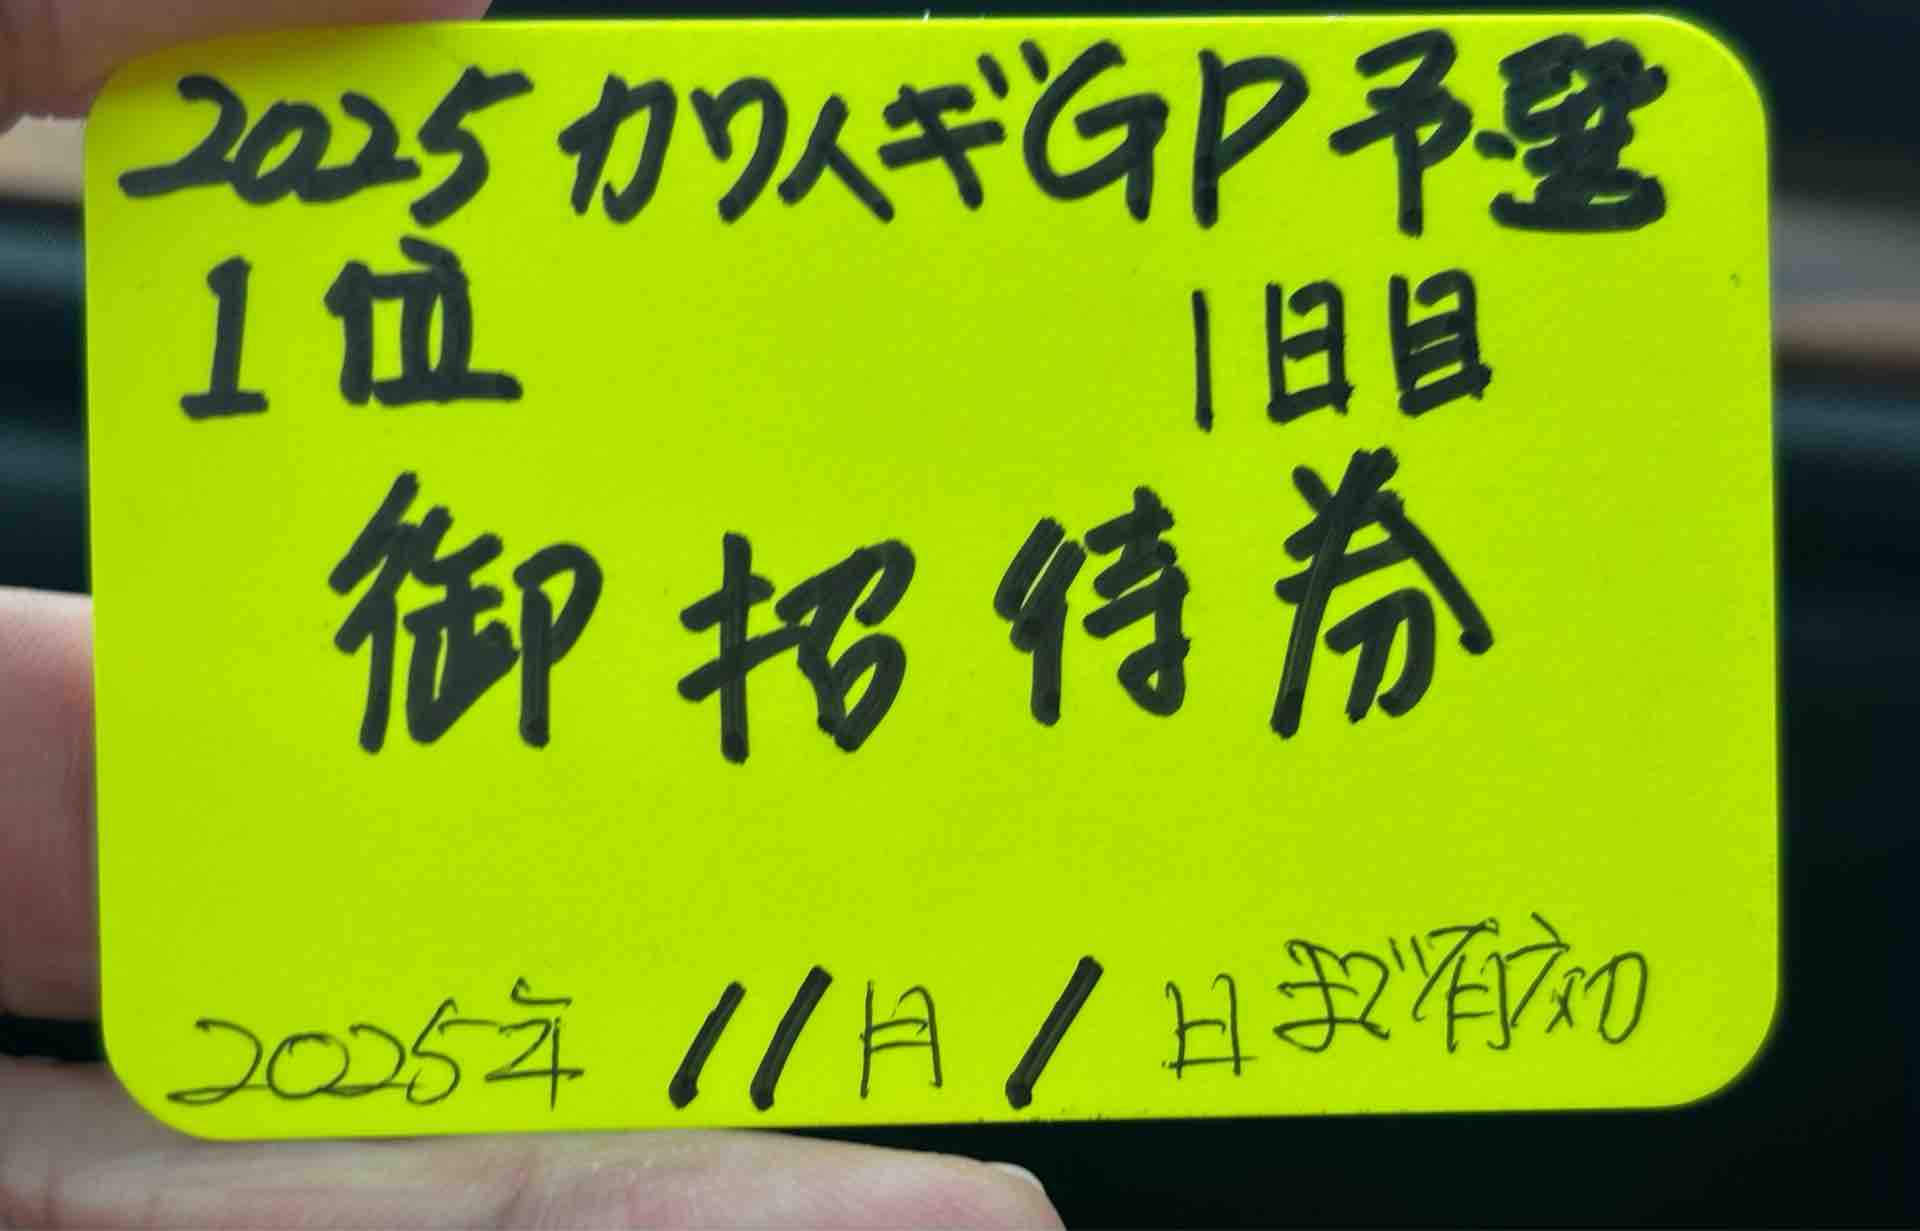 2025 カワイギGP予選
1位 1日目
御招待券
2025年 11月 1日まで有効